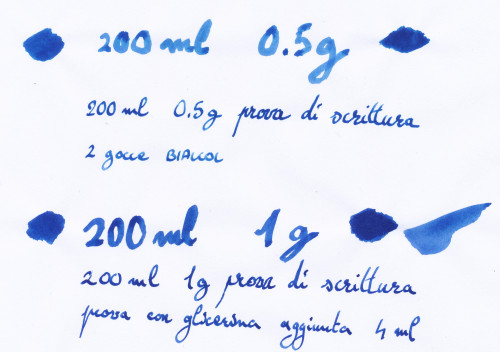 200 ml 0.5g
200 ml 0.5g prova di scrittura
2 gocce
200 ml 1g
200 ml 1g prova di scrittura
prova con glicerina aggiunta 4 ml